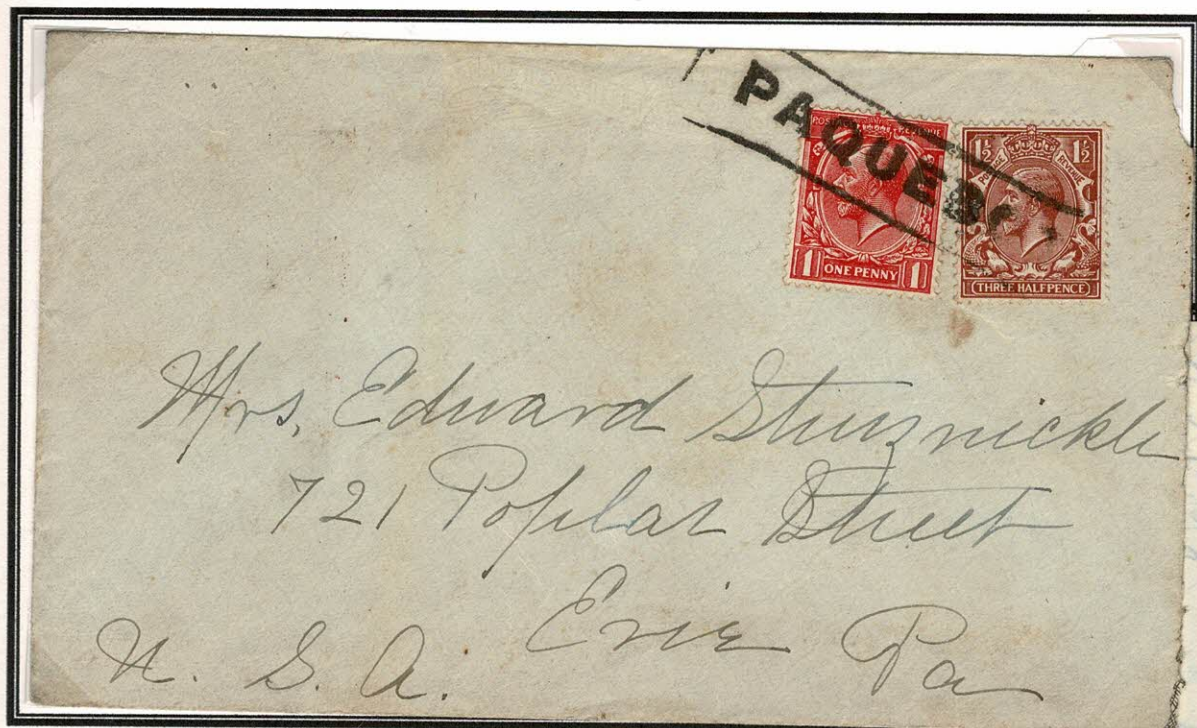 PAQUEBOT
POSTAGE REVENUE
1 ONE PENNY 1
1½ 1½
POSTAGE REVENUE
THREE HALFPENCE
Mrs. Edward
721 Poplar Street
Erie Pa
U. S. A.